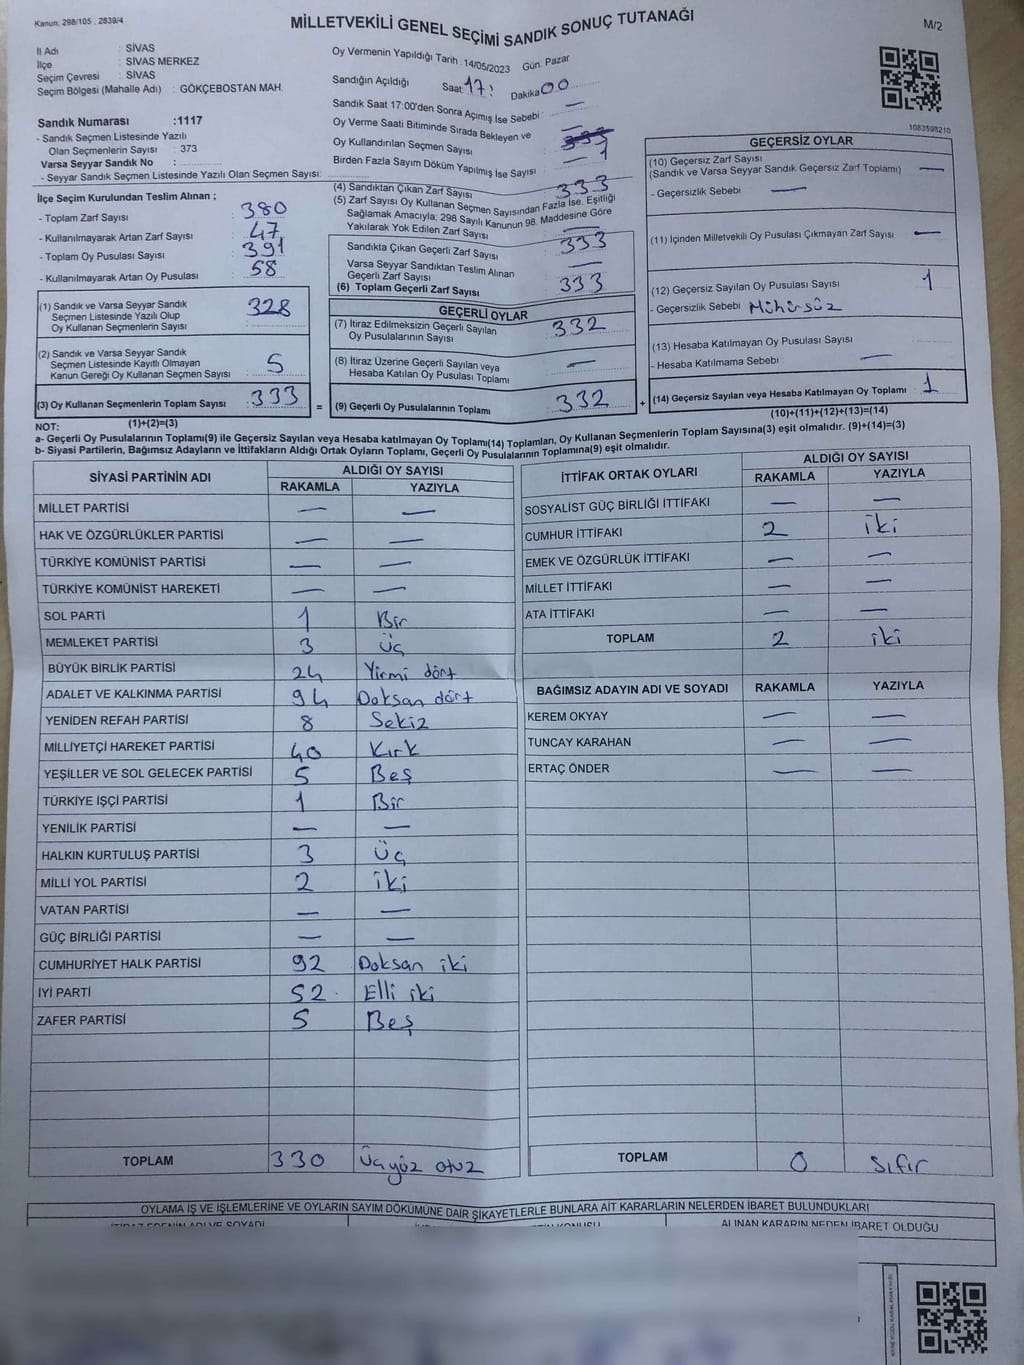 Kanun, 298/105 , 2839/4
MİLLETVEKİLİ GENEL SEÇİMİ SANDIK SONUÇ TUTANAĞI
M/2
İl Adı : SİVAS
İlçe : SİVAS MERKEZ
Seçim Çevresi : SİVAS
Seçim Bölgesi (Mahalle Adı) : GÖKÇEBOSTAN MAH.
Oy Vermenin Yapıldığı Tarih : 14/05/2023 Gün: Pazar
Sandığın Açıldığı Saat: 17: Dakika 00
Sandık Saat 17:00'den Sonra Açılmış İse Sebebi : —
Oy Verme Saati Bitiminde Sırada Bekleyen ve
Oy Kullandırılan Seçmen Sayısı : 333 —
Birden Fazla Sayım Döküm Yapılmış İse Sayısı : 1
Sandık Numarası :1117
- Sandık Seçmen Listesinde Yazılı
Olan Seçmenlerin Sayısı : 373
Varsa Seyyar Sandık No :
- Seyyar Sandık Seçmen Listesinde Yazılı Olan Seçmen Sayısı:
1083598210
İlçe Seçim Kurulundan Teslim Alınan ;
- Toplam Zarf Sayısı : 380
- Kullanılmayarak Artan Zarf Sayısı : 47
- Toplam Oy Pusulası Sayısı : 391
- Kullanılmayarak Artan Oy Pusulası : 58
(1) Sandık ve Varsa Seyyar Sandık
Seçmen Listesinde Yazılı Olup
Oy Kullanan Seçmenlerin Sayısı : 328
(2) Sandık ve Varsa Seyyar Sandık
Seçmen Listesinde Kayıtlı Olmayan
Kanun Gereği Oy Kullanan Seçmen Sayısı : 5
(3) Oy Kullanan Seçmenlerin Toplam Sayısı : 333
(1)+(2)=(3)
(4) Sandıktan Çıkan Zarf Sayısı : 333
(5) Zarf Sayısı Oy Kullanan Seçmen Sayısından Fazla İse, Eşitliği
Sağlamak Amacıyla; 298 Sayılı Kanunun 98. Maddesine Göre
Yakılarak Yok Edilen Zarf Sayısı : —
Sandıkta Çıkan Geçerli Zarf Sayısı : 333
Varsa Seyyar Sandıktan Teslim Alınan
Geçerli Zarf Sayısı : —
(6) Toplam Geçerli Zarf Sayısı : 333
GEÇERLİ OYLAR
(7) İtiraz Edilmeksizin Geçerli Sayılan
Oy Pusulalarının Sayısı : 332
(8) İtiraz Üzerine Geçerli Sayılan veya
Hesaba Katılan Oy Pusulası Toplamı : —
= (9) Geçerli Oy Pusulalarının Toplamı : 332
GEÇERSİZ OYLAR
(10) Geçersiz Zarf Sayısı
(Sandık ve Varsa Seyyar Sandık Geçersiz Zarf Toplamı) : —
- Geçersizlik Sebebi : —
(11) İçinden Milletvekili Oy Pusulası Çıkmayan Zarf Sayısı : —
(12) Geçersiz Sayılan Oy Pusulası Sayısı : 1
- Geçersizlik Sebebi : Mühürsüz
(13) Hesaba Katılmayan Oy Pusulası Sayısı :
- Hesaba Katılmama Sebebi : —
+ (14) Geçersiz Sayılan veya Hesaba Katılmayan Oy Toplamı : 1
(10)+(11)+(12)+(13)=(14)
NOT:
a- Geçerli Oy Pusulalarının Toplamı(9) ile Geçersiz Sayılan veya Hesaba katılmayan Oy Toplamı(14) Toplamları, Oy Kullanan Seçmenlerin Toplam Sayısına(3) eşit olmalıdır. (9)+(14)=(3)
b- Siyasi Partilerin, Bağımsız Adayların ve İttifakların Aldığı Ortak Oyların Toplamı, Geçerli Oy Pusulalarının Toplamına(9) eşit olmalıdır.
SİYASİ PARTİNİN ADI ALDIĞI OY SAYISI
RAKAMLA YAZIYLA
MİLLET PARTİSİ — —
HAK VE ÖZGÜRLÜKLER PARTİSİ — —
TÜRKİYE KOMÜNİST PARTİSİ — —
TÜRKİYE KOMÜNİST HAREKETİ — —
SOL PARTİ 1 Bir
MEMLEKET PARTİSİ 3 Üç
BÜYÜK BİRLİK PARTİSİ 24 Yirmi dört
ADALET VE KALKINMA PARTİSİ 94 Doksan dört
YENİDEN REFAH PARTİSİ 8 Sekiz
MİLLİYETÇİ HAREKET PARTİSİ 40 Kırk
YEŞİLLER VE SOL GELECEK PARTİSİ 5 Beş
TÜRKİYE İŞÇİ PARTİSİ 1 Bir
YENİLİK PARTİSİ — —
HALKIN KURTULUŞ PARTİSİ 3 Üç
MİLLİ YOL PARTİSİ 2 iki
VATAN PARTİSİ — —
GÜÇ BİRLİĞİ PARTİSİ — —
CUMHURİYET HALK PARTİSİ 92 Doksan iki
İYİ PARTİ 52 Elli iki
ZAFER PARTİSİ 5 Beş
TOPLAM 330 Üçyüz otuz
İTTİFAK ORTAK OYLARI ALDIĞI OY SAYISI
RAKAMLA YAZIYLA
SOSYALİST GÜÇ BİRLİĞİ İTTİFAKI — —
CUMHUR İTTİFAKI 2 iki
EMEK VE ÖZGÜRLÜK İTTİFAKI — —
MİLLET İTTİFAKI — —
ATA İTTİFAKI — —
TOPLAM 2 iki
BAĞIMSIZ ADAYIN ADI VE SOYADI RAKAMLA YAZIYLA
KEREM OKYAY — —
TUNCAY KARAHAN — —
ERTAÇ ÖNDER — —
TOPLAM 0 Sıfır
OYLAMA İŞ VE İŞLEMLERİNE VE OYLARIN SAYIM DÖKÜMÜNE DAİR ŞİKAYETLERLE BUNLARA AİT KARARLARIN NELERDEN İBARET BULUNDUKLARI
İTİRAZ EDENİN ADI VE SOYADI
ALINAN KARARIN NEDEN İBARET OLDUĞU